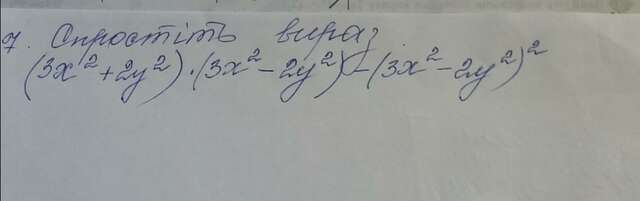 7. Спростіть вираз
(3x²+2y²)·(3x²-2y²)-(3x²-2y²)²